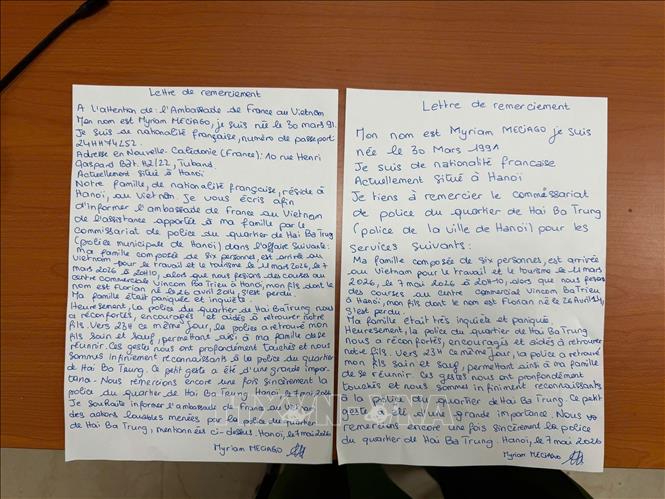 Lettre de remerciement
A l'attention de: l'Ambassade de France au Vietnam
Mon nom est Myriam MECIAGO, je suis née le 30 mars 91.
Je suis de nationalité française, numéro de passeport:
24HH74252.
Adresse en Nouvelle-Calédonie (France): 10 rue Henri
Gaspard Bât. H2/22, Tuband.
Actuellement situé à Hanoï
Notre famille, de nationalité française, réside à
Hanoï, au Vietnam. Je vous écris afin
d'informer l'ambassade de France au Vietnam
de l'assistance apportée à ma famille par le
commissariat de police du quartier de Hai Ba Trung
(police municipale de Hanoï) dans l'affaire suivante:
Ma famille composée de six personnes, est arrivée au
Vietnam pour le travail et le tourisme le 11 mars 2026, le 7
mai 2026 à 20H10, alors que nous faisions des courses au
centre commercial Vincom Ba Trieu à Hanoï, mon fils dont le
nom est Florian né le 26 avril 2014, s'est perdu.
Ma famille était paniquée et inquiète.
Heureusement, la police du quartier de Hai Ba Trung nous
a réconfortés, encouragés et aidés à retrouver notre
fils. Vers 23H ce même jour, la police a retrouvé mon
fils sain et sauf, permettant ainsi à ma famille de se
réunir. Ces gestes nous ont profondément touchés et nous
sommes infiniment reconnaissants à la police du quartier
de Hai Ba Trung. Ce petit geste a été d'une grande impor-
tance. Nous remercions encore une fois sincèrement la
police du quartier de Hai Ba Trung. Hanoï, 7 mai 2026
Je souhaite informer l'ambassade de France au Vietnam
des actions louables menées par la police du quartier
de Hai Ba Trung, mentionnées ci-dessus. Hanoï, le 7 mai 2026
Myriam MECIAGO
Lettre de remerciement
Mon nom est Myriam MECIAGO je suis
née le 30 Mars 1991
Je suis de nationalité francaise
Actuellement situé à Hanoï
Je tiens à remercier le commissariat
de police du quartier de Hai Ba Trung
(police de la ville de Hanoï) pour les
services suivants:
Ma famille composée de six personnes, est arrivée
au Vietnam pour le travail et le tourisme le 11 mars
2026, le 7 mai 2026 à 20H10, alors que nous faisions
des courses au centre commercial Vincom Ba Trieu
à Hanoï, mon fils dont le nom est Florian né le 26 Avril 14,
s'est perdu.
Ma famille était très inquiète et paniquée.
Heureusement, la police du quartier de Hai Ba Trung
nous a réconfortés, encouragés et aidés à retrouver
notre fils. Vers 23H ce même jour, la police a retrouvé
mon fils sain et sauf, permettant ainsi à ma famille
de se réunir. Ces gestes nous ont profondément
touchés et nous sommes infiniment reconnaissants
à la police du quartier de Hai Ba Trung. Ce petit
geste a été d'une grande importance. Nous vous
remercions encore une fois sincèrement la police
du quartier de Hai Ba Trung. Hanoï, le 7 mai 2026
Myriam MECIAGO